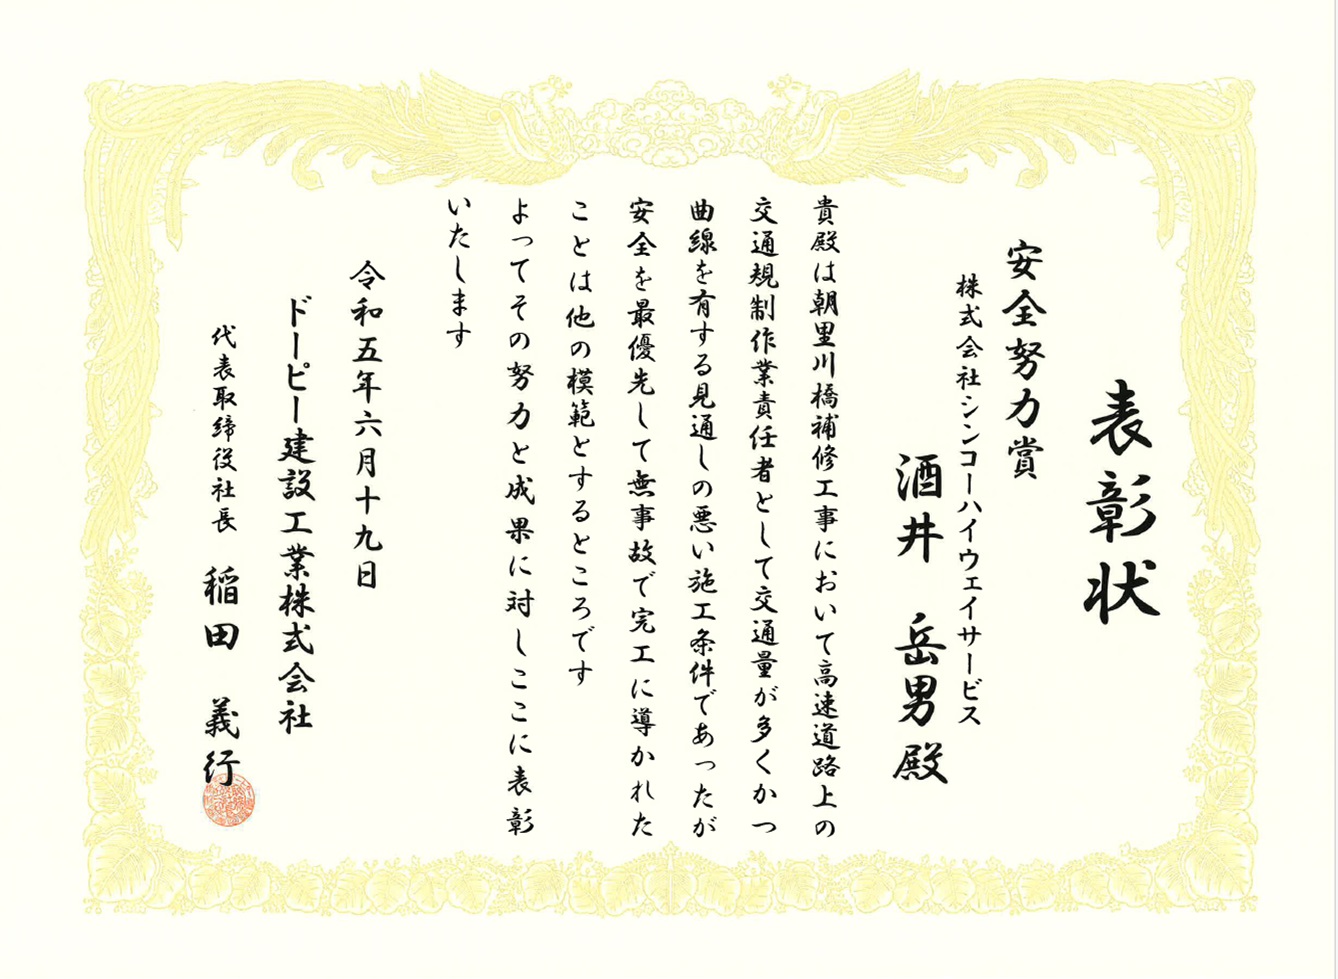 表彰状
安全努力賞
株式会社シンコーハイウェイサービス
酒井 岳男殿
貴殿は朝里川橋補修工事において高速道路上の
交通規制作業責任者として交通量が多くかつ
曲線を有する見通しの悪い施工条件であったが
安全を最優先して無事故で完工に導かれた
ことは他の模範とするところです
よってその努力と成果に対しここに表彰
いたします
令和五年六月十九日
ドーピー建設工業株式会社
代表取締役社長 稲田 義行